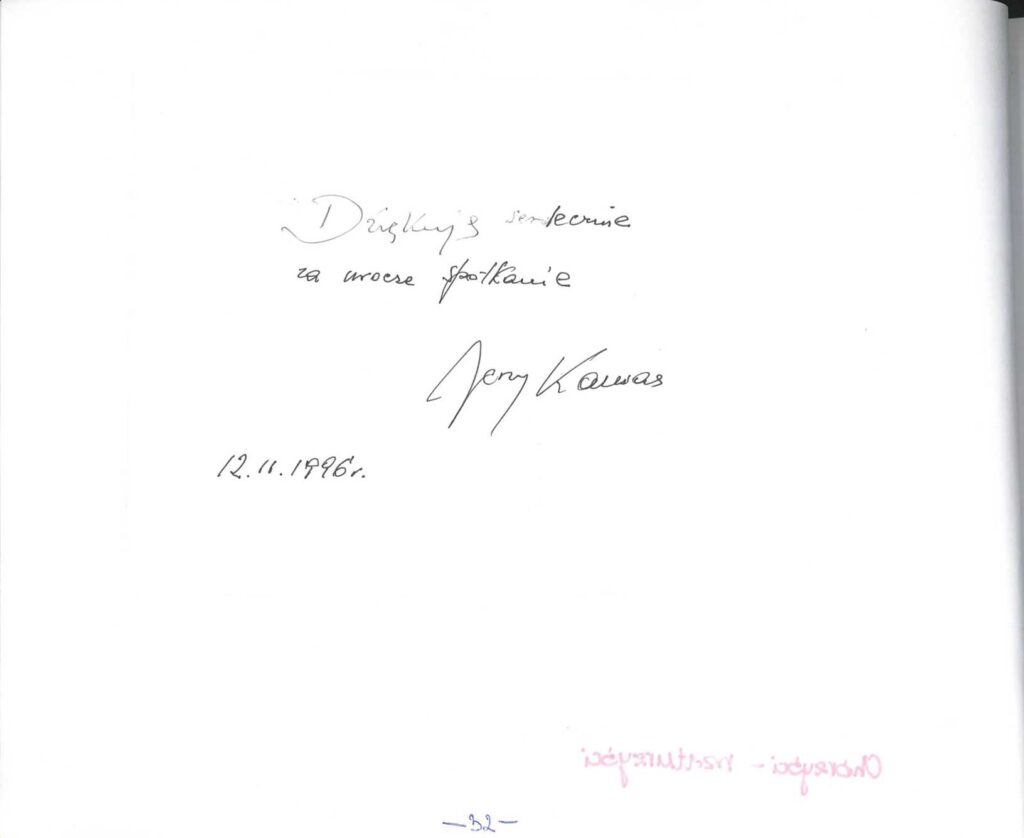 Dziękuję serdecznie
za urocze spotkanie
Jerzy
12.11.1996r.
Chórzyści -
— 32 —